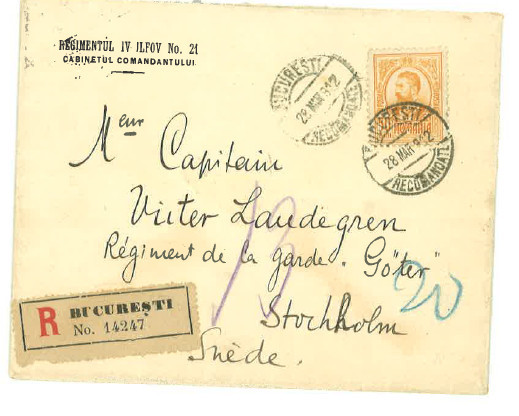 REGIMENTUL IV ILFOV No. 21
CABINETUL COMANDANTULUI
BUCURESTI
28 MAR 912
RECOMANDATE
BUCURESTI
28 MAR 912
RECOMANDATE
Meur Capitain
Victor Laudegren
Régiment de la garde "Göter"
13
20
Stockholm
Suède.
R BUCUREȘTI
No. 14247